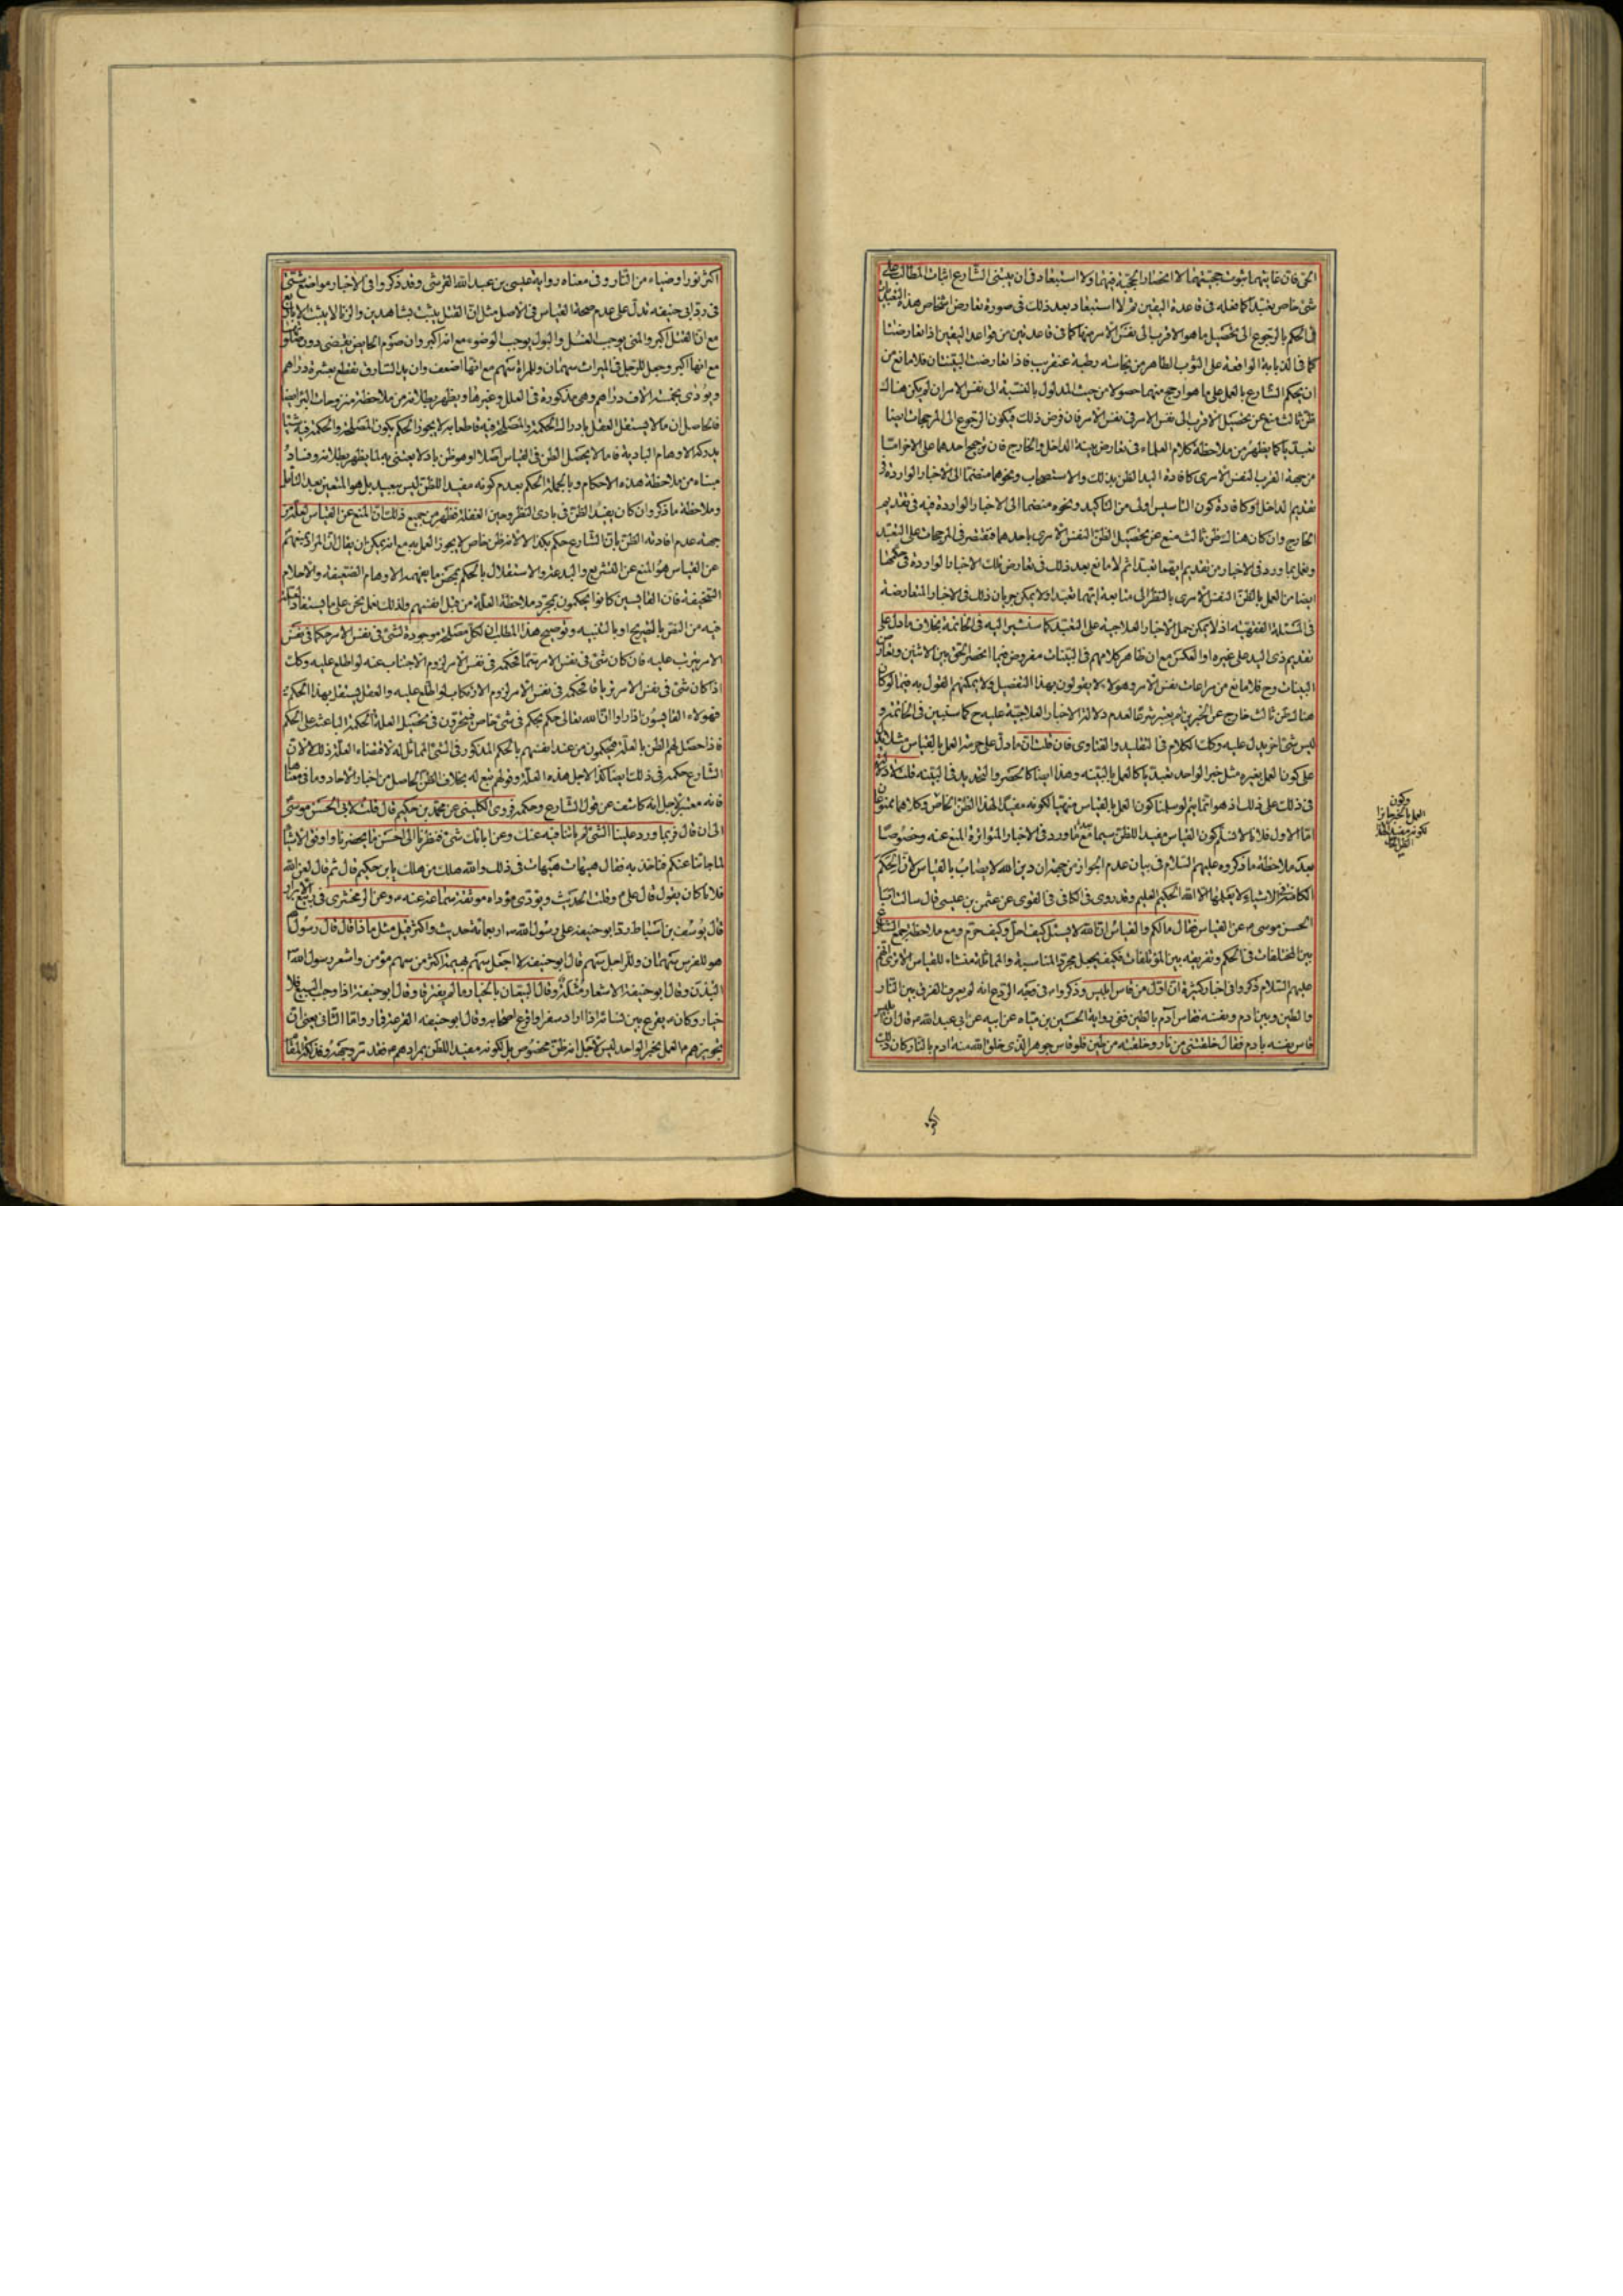 الحق فان غايتهما ثبوت حجيتهما لا انحصار الحجية فيهما ولا استبعاد في ان يبتنى الشارع اثبات المطالب على
شئ خاص تعبدا كما فعله في قاعدة اليقين ثم لا استبعاد بعد ذلك في صورة تعارض اشخاص هذا
في الحكم بالرجوع الى تحصيل ما هو الاقرب الى نفس الامر منهما كما في قاعدتين من قواعد اليقين اذا تعارضتا
كما في الذبابة الواقعة على الثوب الطاهر من نجاسة رطبة عنقريب فاذا تعارضت البينتان فلا مانع من
ان يحكم الشارع بالعمل على ما هو ارجح منهما حصولا من حيث المدلول بالنسبة الى نفس الامر ان لم يكن هناك
ظن ثالث منع عن تحصيل الاقرب الى نفس الامر في نفس الامر فان فرض ذلك فيكون الرجوع الى المرجحات ايضا
تعبديا كما يظهر من ملاحظة كلام العلماء في تعارض بينة الداخل والخارج فان ترجيح احدهما على الاخر اما
من جهة القرب لنفس الامرى كافادة اليد الظن بذلك والاستصحاب ونحوهما منضما الى الاخبار الواردة في
تقديم الداخل او كافادة كون التاسيس اولى من التاكيد ونحوه منضما الى الاخبار الواردة فيه في تقديم
الخارج وان كان هناك ظن ثالث منع عن تحصيل الظن النفس الامرى باحدهما فتقتصر في المرجحات على التعبد
ونعمل بما ورد في الاخبار من تقديم ايهما تعبدا ثم لا مانع بعد ذلك في تعارض تلك الاخبار الواردة في حكمها
ايضا من العمل بالظن النفس الامرى بالنظر الى متابعة ايتهما تعبدا ولا يمكن جريان ذلك في الاخبار المتعارضة
في المسئلة الفقهية اذ لا يمكن حمل الاخبار العلاجية على التعبد كما سنشير اليه في الخاتمة بخلاف ما دل على
تقديم ذى اليد على غيره او العكس مع ان ظاهر كلامهم في البينات مفروض فيما انحصار الحق بين الاثنين وتعارض
البينات وح فلا مانع من مراعات نفس الامر وهؤلاء لا يقولون بهذا التفصيل ولا يمكنهم القول به فيما لو كان
هناك ظن ثالث خارج عن الخبرين لم يعتبر شرعا لعدم دلالة الاخبار العلاجية عليه ح كما سنبين في الخاتمة و
ليس شئ اخر يدل عليه وكذلك الكلام في التقليد والفتاوى فان قلت ان ما دل على حرمة العمل بالقياس مثلا
على كون العمل بغيره مثل خبر الواحد تعبديا كالعمل بالبينة وهذا ايضا كالحصر والتحديد في البينة قلت لا دلالة
في ذلك على ذلك اذ هو انما يتم لو سلمنا كون العمل بالقياس منهيا لكونه مفيدا لهذا الظن الخاص وكلاهما ممنوعان
اما الاول فلانا لا نسلم كون القياس مفيدا للظن سيما مع ما ورد في الاخبار المتواترة المنع عنه وخصوصا
بعد ملاحظة ما ذكروه عليهم السلام في بيان عدم الجواز من جهة ان دين الله لا يصاب بالقياس لان الحكم
الكامنة في الاشياء لا يعلمها الا الله الحكيم العليم وقد روى في الكافي في القوى عن عثمن بن عيسى قال سالت ابا
الحسن موسى عن القياس فقال مالكم والقياس ان الله لا يسئل كيف احل وكيف حرم ومع ملاحظة جمع الشارع
بين المختلفات في الحكم وتفريقه بين المؤتلفات فكيف يجعل مجرد المناسبة والمماثلة منشاء للقياس
عليهم السلام ذكروا في اخبار كثيرة ان اول من قاس ابليس وذكروا في وجه الردع انه لم يعرف الفرق بين النار
والطين وبين ادم ونفسه فقاس آدم بالطين ففي رواية الحسين بن مياح عن ابيه عن ابي عبد الله قال ان ابليس
قاس نفسه بادم فقال خلقتني من نار وخلقته من طين فلو قاس جوهر الذى خلق الله منه ادم بالنار كان ذلك
وكون
العمل بالخبر جايزا
لكونه مفيدا لهذا
الظن الخاص
اكثر نورا وضياء من النار وفي معناه رواية عيسى بن عبد الله القرشى وقد ذكروا في الاخبار مواضع شتى
في رد ابي حنيفه تدل على عدم صحة القياس في الاصل مثل ان القتل يثبت بشاهدين والزنا لا يثبت الا باربع
مع ان القتل اكبر والمنى يوجب الغسل والبول يوجب الوضوء مع انه اكبر وان صوم الحايض يقضى دون صلوتها
مع انها اكبر وجعل للرجل في الميراث سهمان وللمراة سهم مع انها اضعف وان يد السارق تقطع بعشرة دراهم
ويؤدى بخمسة الاف دراهم وهي مذكورة في العلل وغيرها ويظهر بطلانه من ملاحظة منزوحات البئر ايضا
فالحاصل ان ما لا يستقل العقل بادراك الحكمة والمصلحة فيه قاطعا به لا يجوز الحكم بكون المصلحة والحكمة فيه شيئا
يدركه الاوهام البادية فاما لا يحصل الظن في القياس اصلا او هو ظن بادى لا يعتنى به لما يظهر بطلانه وفساد
مبناه من ملاحظة هذه الاحكام وبالجملة الحكم بعدم كونه مفيدا للظن ليس ببعيد بل هو المتعين بعد التامل
وملاحظة ما ذكر وان كان يفيد الظن في بادى النظر وحين الغفلة فظهر من جميع ذلك ان المنع عن القياس لعله من
جهة عدم افادته الظن بان الشارع حكم بكذا لا لانه ظن خاص لا يجوز العمل به مع انه يمكن ان يقال ان المراد بنهيهم
عن القياس هو المنع عن التشريع والبدعة والاستقلال بالحكم بمحض ما يفهمه الاوهام الضعيفة والاحلام
السخيفة فان القايسين كانوا يحكمون بمجرد ملاحظة العلة من قبل انفسهم ولذلك نعمل نحن على ما يستفاد
فيه من النص بالصريح او بالتنبيه وتوضيح هذا المطلب ان لكل مصلحة موجودة لشئ في نفس الامر حكما في نفس
الامر يترتب عليه فان كان شئ في نفس الامر سما فحكمه في نفس الامر لزوم الاجتناب عنه لو اطلع عليه وكذلك
اذا كان شئ في نفس الامر ترياقا فحكمه في نفس الامر لزوم الارتكاب لو اطلع عليه والعقل يستقل بهذا الحكم
فهؤلاء القايسون اذا راوا ان الله تعالى حكم بحكم في شئ خاص فيتحرون في تحصيل العلة الحكمة الباعثة على الحكم
فاذا حصل لهم الظن بالعلة فيحكمون من عند انفسهم بالحكم المذكور في الشئ المماثل له لاقتضاء العلة ذلك لا لان
الشارع حكمه في ذلك ايضا كذا لاجل هذه العلة وقولهم تبع له بخلاف الظن الحاصل من اخبار الاحاد وما في معناها
فانه معتبر لاجل انه كاشف عن قول الشارع وحكمه فروى الكلينى عن محمد بن حكيم قال قلت لابي الحسن موسى
الى ان قال فربما ورد علينا الشئ لم ياتنا فيه عنك وعن ابائك شئ فنظرنا الى احسن ما يحضرنا واوفق الاشياء
لما جائنا عنكم فناخذ به فقال هيهات هيهات في ذلك والله هلك من هلك يا بن حكيم قال ثم قال لعن الله
فلانا كان يقول قال على وقلت الحديث ويؤدى مؤداه موثقة سماعة عنه وعن الزمخشرى في ربيع الابرار
قال يوسف بن اسباط رد ابو حنيفة على رسول الله اربعمائة حديث واكثر قيل مثل ماذا قال قال رسول الله
هو للفرس سهمان وللراجل سهم قال ابو حنيفة لا اجعل سهم بهيمة اكثر من سهم مؤمن واشعر رسول الله
البدن وقال ابو حنيفة الاشعار مثلة وقال البيعان بالخيار ما لم يفترقا وقال ابو حنيفة اذا وجب البيع فلا
خيار وكان يقرع بين نسائه اذا اراد سفرا واقرع اصحابه وقال ابو حنيفه القرعة قمار واما الثاني يعنى ان
تجويزهم العمل بخبر الواحد ليس لاجل انه ظن مخصوص بل لكونه مفيدا للظن بمرادهم فقد